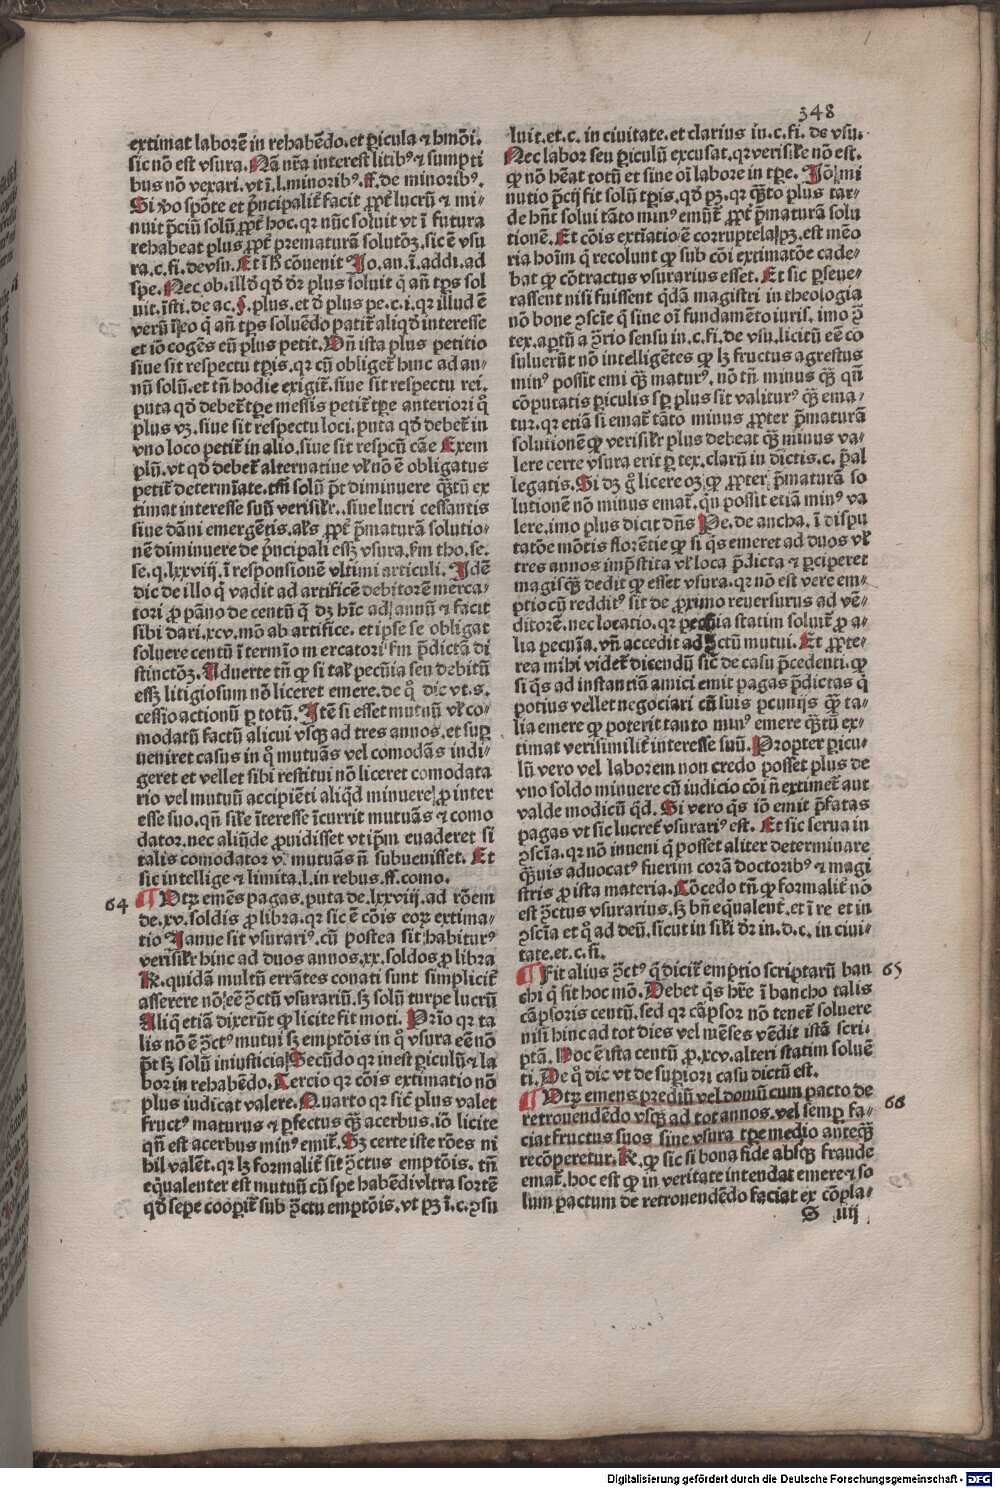 348
extimat laborē in rehabēdo.et ꝑicula ⁊ hmōi.
sic nō est vsura. Nā nr̄a interest litibꝰ ⁊ sumpti
bus nō vexari. vt ī.l.minoribꝰ.ff.de minoribꝰ.
Si ꝟo spōte et pͥncipaliť facit ꝓpť lucrū ⁊ mi-
nuit p̄ciū solū ꝓpť hoc. qr nūc soluit vt ī futura
rehabeat plus ꝓpť prematurā solutōꝫ. sic ē vsu
ra.c.fi.de vsu. Et ī id cōuenit Jo.an.ī.addi.ad
spe. Nec ob. illd̓ qd̓ dr̄ plus soluit q̄ an̄ tp̄s sol
uit.īsti.de ac.§.plus.et d̓ plus pe.c.i.qr illud ē
verū īeo q̄ an̄ tp̄s soluēdo patiť aliqd̓ interesse
et iō cogēs eū plus petit. Un̄ ista plus petitio
siue sit respectu tꝑis.qr cū obligeť hinc ad an-
nū solū.et tn̄ hodie exigiť.siue sit respectu rei.
puta qd̓ debeť tꝑe messis petiť tꝑe anteriori qͦ
plus vꝫ.siue sit respectu loci.puta qd̓ debeť in
vno loco petiť in alio.siue sit respcū cāe Exem
plū.vt qd̓ debeť alternatiue vľ nō ē obligatus
petiť determīate.tm̄ solū p̄t diminuere q̄ꝫtū ex
timat interesse suū verisiľr..siue lucri cessantis
siue dāni emergētis.aľs ꝓpť p̄maturā solutio-
nē diminuere de pͥncipali eēꝫ vsura.ẜm tho.se.
se.q.lxxviij.ī responsionē vltimi articuli. Idē
dic de illo q̄ vadit ad artificē debitorē merca-
tori ꝓ pāno de centū q̄ dꝫ hr̄e ad annū ⁊ facit
sibi dari.xcv.mō ab artifice.et ipse se obligat
soluere centū ī termīo mercatori ẜm p̄dictā di
stinctōꝫ. Aduerte tn̄ ꝙ si talꝭ pecūia seu debitū
eēꝫ litigiosum nō liceret emere.de qͦ dic vt.s.
cessio actionū ꝑ totū. Itē si esset mutuū vľ co-
modatū factū alicui vsqꝫ ad tres annos.et suꝑ
ueniret casus in qͦ mutuās vel comodās indi-
geret et vellet sibi restitui nō liceret comodata
rio vel mutuū accipiēti aliqd̓ minuere ꝓ inter
esse suo.qn̄ siľe īteresse īcurrit mutuās ⁊ como
dator.nec aliūde ꝓuidisset vt ipm̄ euaderet si
talis comodator vľ mutuās n̄ subuenisset. Et
sic intellige ⁊ limita.l.in rebus.ff.como.
64 ¶ Utꝝ emēs pagas.puta de.lxxviij.ad rōem
de.xv.soldis ꝓ libra.qr sic ē cōis eoꝝ extima-
tio Janue sit vsurariꝰ.cū postea sit habiturꝰ
verisiľr hinc ad duos annos.xx.soldos ꝓ libra
R̄.quidā multū errātes conati sunt simpliciť
asserere nō eē ↄ̄ctū vsurariū.sꝫ solū turpe lucrū
Aliq̄ etiā dixerūt ꝙ licite fit moti. Prīo qr ta
lis nō ē ↄ̄ctꝰ mutui sꝫ emptōis in qͦ vsura eē nō
p̄t sꝫ solū iniusticia. Secūdo qr inest ꝑiculū ⁊ la
bor in rehabēdo. Tercio qr cōis extimatio nō
plus iudicat valere. Quarto qr sic̄ plus valet
fructꝰ maturus ⁊ ꝑfectus q̄ꝫ acerbus.iō licite
qn̄ est acerbus minꝰ emiť. Sꝫ certe iste rōes ni
hil valēt.qr lꝫ formaliť sit ↄ̄ctus emptōis.tn̄
eq̄ualenter est mutuū cū spe habēdi vltra sortē
qd̓ sepe coopiť sub ↄ̄ctu emptōis.vt pꝫ ī.c.ↄsu
luit.et.c. in ciuitate.et clarius in.c.fi.de vsu.
Nec labor seu ꝑiculū excusat.qr verisiľe nō est.
ꝙ nō hēat totū et sine oī labore in tꝑe. Iō mi
nutio p̄cij fit solū tꝑis.qd̓ pꝫ.qr q̄ꝫto plus tar-
de hn̄t solui tāto minꝰ emūť ꝓpť p̄maturā solu
tionē. Et cōis extīatio ē corruptela.pꝫ.est mēo
ria hoīm q̄ recolunt ꝙ sub cōi extimatōe cade-
bat ꝙ cōtractus vsurarius esset. Et sic ꝑseue-
rassent nisi fuissent q̄dā magistri in theologia
nō bone ↄscīe q̄ sine oī fundamēto iuris.imo ↄ̄
tex.aꝑtū a ↄ̄rio sensu in.c.fi.de vsu.licitū eē co
suluerūt nō intelligētes ꝙ lꝫ fructus agrestus
minꝰ possit emi q̄ꝫ maturꝰ.nō tn̄ minus q̄ꝫ qn̄
cōputatis ꝑiculis sꝑ plus sit valiturꝰ q̄ꝫ ema-
tur.qr etiā si emať tāto minus ꝓpter p̄maturā
solutionē ꝙ verisiľr plus debeat q̄ꝫ minus va-
lere certe vsura erit ꝑ tex.clarū in dictis.c.p̄al
legatis. Si dꝫ g̊ licere oꝫ ꝙ ꝓpter p̄maturā so
lutionē nō minus emať.q̄n possit etiā minꝰ va
lere.imo plus dicit dn̄s Pe.de ancha.ī dispu
tatōe mōtis florētie ꝙ si q̄s emeret ad duos vľ
tres annos imp̄stita vľ loca p̄dicta ⁊ ꝑciperet
magisq̄ꝫ dedit ꝙ esset vsura.qr nō est vere em-
ptio cū redditꝰ sit de ꝓximo reuersurus ad vē-
ditorē.nec locatio.qr pecūia statim soluiť ꝓ a-
lia pecūia.vn̄ accedit ad ↄ̄ctū mutui. Et ꝓpte-
rea mihi videť dicendū sic̄ de casu p̄cedenti.ꝙ
si q̄s ad instantiā amici emit pagas p̄dictas q̄
potius vellet negociari cū suis pcunijs q̄ꝫ ta-
lia emere ꝙ poterit tanto minꝰ emere q̄ꝫtū ex-
timat verisimiliť interesse suū. Propter ꝑicu-
lū vero vel laborem non credo posset plus de
vno soldo minuere cū iudicio cōi n̄ extimeť aut
valde modicū q̄d. Si vero q̄s iō emit p̄fatas
pagas vt sic lucreť vsurariꝰ est. Et sic serua in
ↄscīa.qr nō inueni q̄ posset aliter determinare
q̄ꝫuis aduocatꝰ fuerim corā doctoribꝰ ⁊ magi
stris ꝓ ista materia. Cōcedo tn̄ ꝙ formaliť nō
est ↄ̄ctus vsurarius.sꝫ bn̄ eq̄ualenť.et ī re et in
ↄscīa et q̄ ad deū.sicut in siľi dr̄ in.d.c.in ciui-
tate.et.c.si.
¶ Fit alius ↄ̄ctꝰ q̄ diciť emptio scriptarū ban 65
chi q̄ sit hoc mō. Debet q̄s hr̄e ī bancho talis
cāpsoris centū.sed qr cāpsor nō teneť soluere
nisi hinc ad tot dies vel mēses vēdit istā scri-
ptā. Hoc ē ista centū ꝓ.xcv.alteri statim soluē
ti. De qͦ dic vt de superiori casu dictū est.
¶ Utꝝ emens prediū vel domū cum pacto de 66
retrouendēdo vsqꝫ ad tot annos.vel semꝑ fa-
ciat fructus suos sine vsura tꝑe medio anteq̄ꝫ
recōperetur. R̄.ꝙ sic si bona fide absqꝫ fraude
emať.hoc est ꝙ in veritate intendat emere ⁊ so
lum pactum de retrouendēdo faciat ex cōpla-
S iij
Digitalisierung gefördert durch die Deutsche Forschungsgemeinschaft - DFG